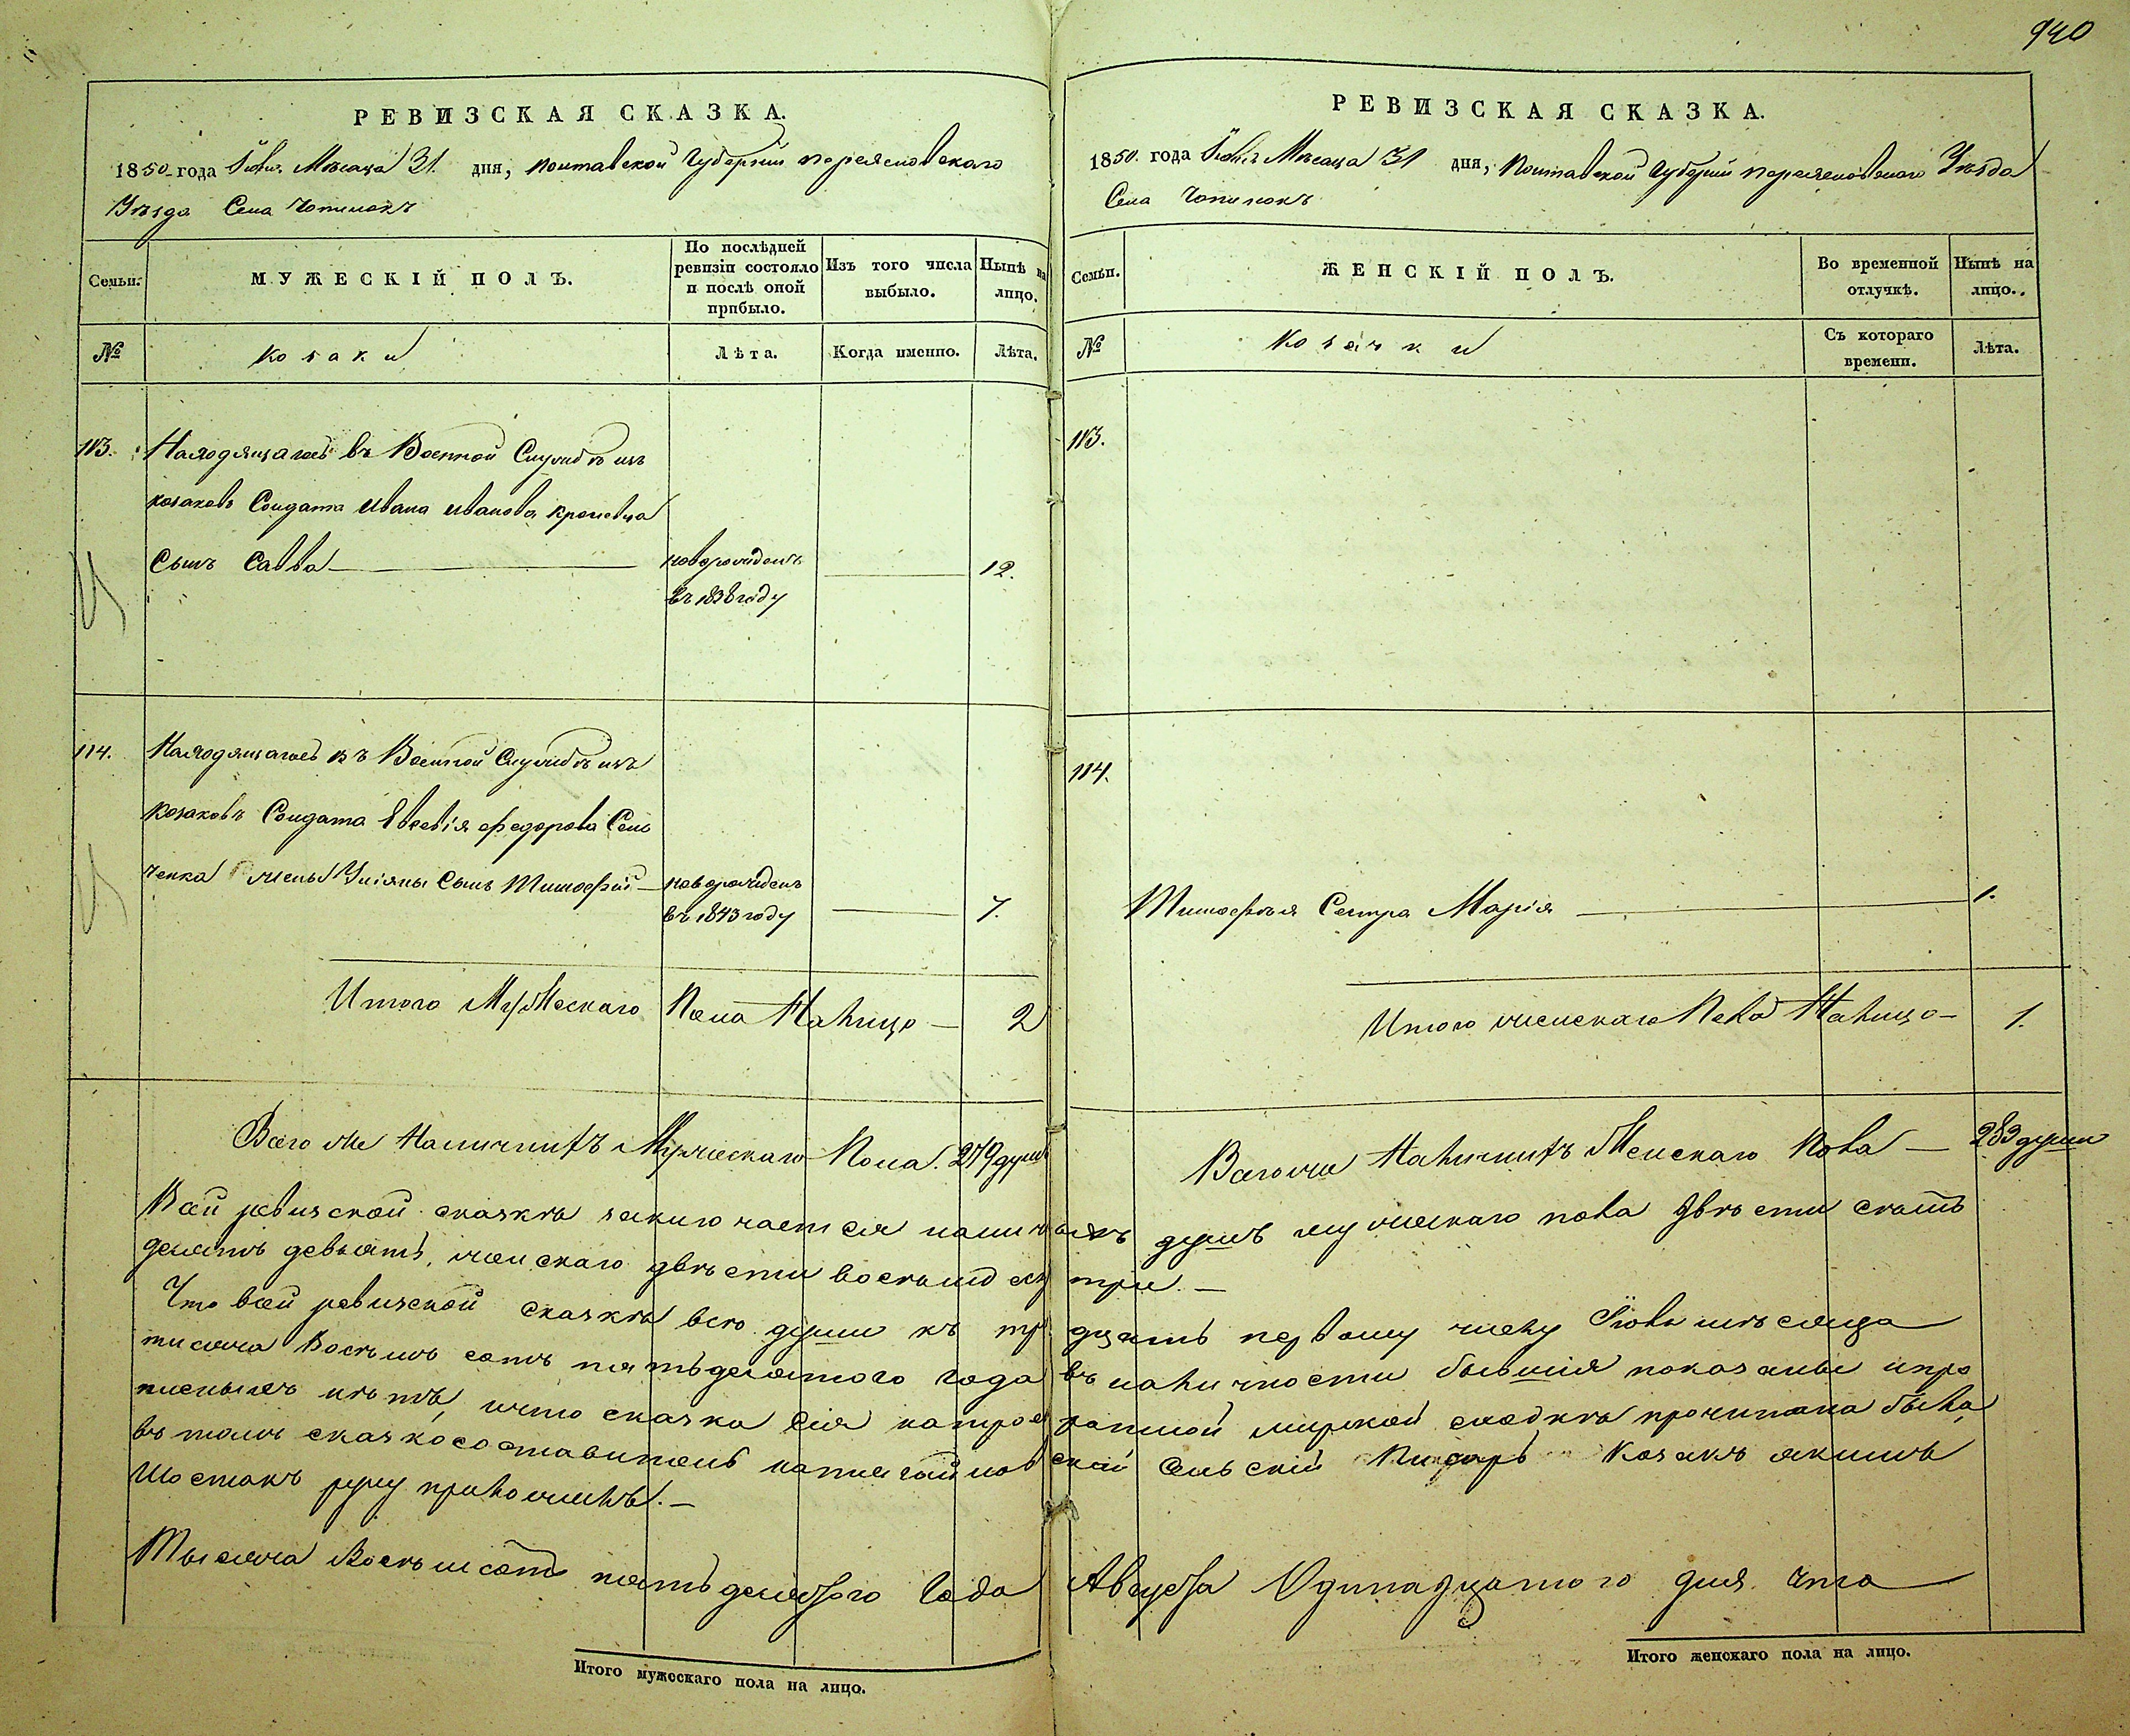 940
РЕВИЗСКАЯ СКАЗКА.
1850 года Июля Месяца 31. дня, Полтавской Губернии Переяславского
Уезда Села Чопилокъ
Семьи.
МУЖЕСКІЙ ПОЛЪ.
По послѣдней ревизіи состояло и послѣ оной прибыло.
Изъ того числа выбыло.
Нынѣ на лицо.
№
Козаки
Лѣта.
Когда именно.
Лѣта.
113. Находящагось въ Военной Службѣ изъ
козаковъ Солдата Ивана Иванова
Сынъ Савва — новорожденъ — 12.
въ 1838 году
114. Находящагось въ Военной Службѣ изъ
Козаковъ Солдата Евсевія Федорова Сен
ченка жены Уліяны Сынъ Тимофей — новорожденъ — 7.
въ 1843 году
Итого Мужескаго Пола Налицо — 2
Всего же Наличнихъ Мужескаго Пола. 279 душъ
РЕВИЗСКАЯ СКАЗКА.
1850. года Июля Месяца 31 дня, Полтавской Губерніи Переяславского Уѣзда
Села Чопилокъ
Семьи.
ЖЕНСКІЙ ПОЛЪ.
Во временной отлучкѣ.
Нынѣ на лицо.
№
Козачки
Съ котораго времени.
Лѣта.
113.
114.
Тимофѣя Сестра Марія — 1.
Итого женскаго Пола Налицо — 1.
Всего же Наличнихъ Женскаго Пола — 283 души
Всей ревизской сказкѣ заключается наличныхъ душъ мужескаго пола двѣсти семъ
десятъ девьять, женскаго двѣсти восемьдесят три. —
Что всей ревизской сказкѣ всѣ души къ тридцать первому числу Июля мѣсяца
тисяча Восѣмъ сотъ пятьдесятого года въ наличности бывшія показаны и про
писныхъ нѣтъ, и что сказка сія на мирской сходкѣ прочитана была,
въ томъ сказкосоставитель сельскій Писарь Козакъ Якимъ
Шостакъ руку приложилъ. —
Тысяча Восѣмсотъ пятьдесятого Года Августа Одинадцатого дня что
Итого мужескаго пола на лицо.
Итого женскаго пола на лицо.